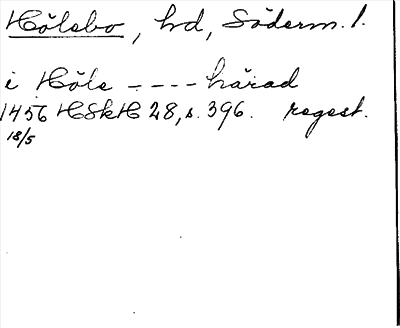 Hölebo, hd, Söderm. l.
i Höle ---- härad
1456 HSkH 28, s. 396. regest.
18/5